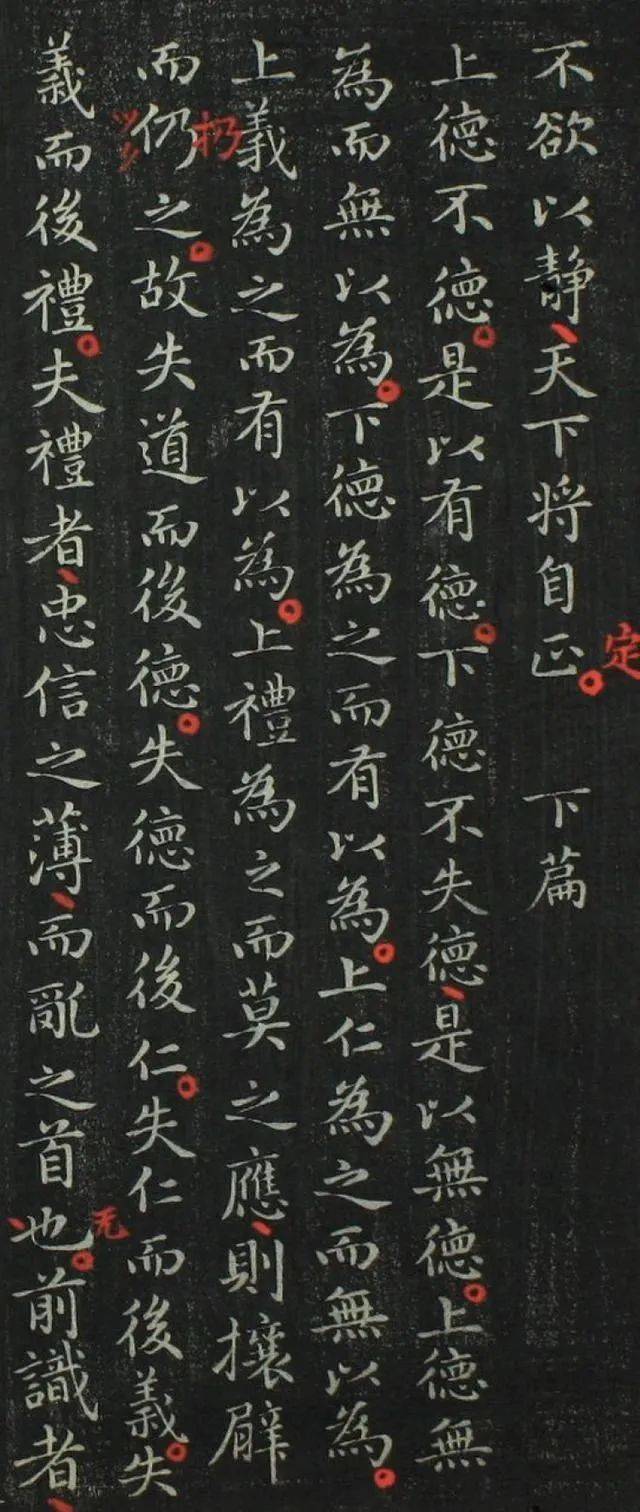 不欲以静、天下将自正。　下篇
定
上德不德。是以有德。下德不失德、是以無德。上德無
為而無以為。下德為之而有以為。上仁為之而無以為。
上義為之而有以為。上禮為之而莫之應、則攘臂
扔
而仍之。故失道而後德。失德而後仁。失仁而後義。失
无
義而後禮。夫禮者、忠信之薄、而亂之首、也。前識者、